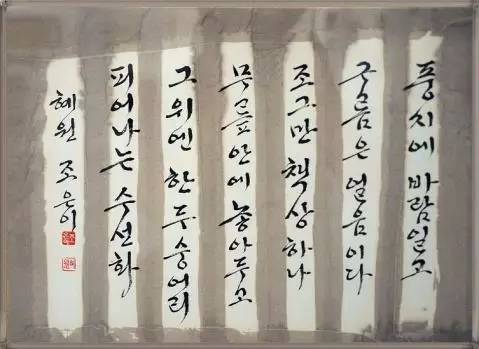 풍지에 바람일고
구름은 얼음이다
조그만 책상하나
무릎안에 놓아두고
그 위엔 한두숭어리
피어나는 수선화
혜원 조은이